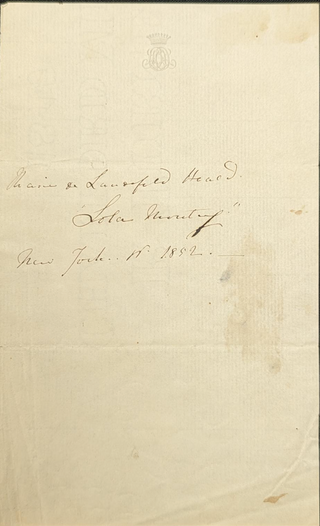 Marie de Landsfeld Heald.
"Lola Montez"
New York. 1852.